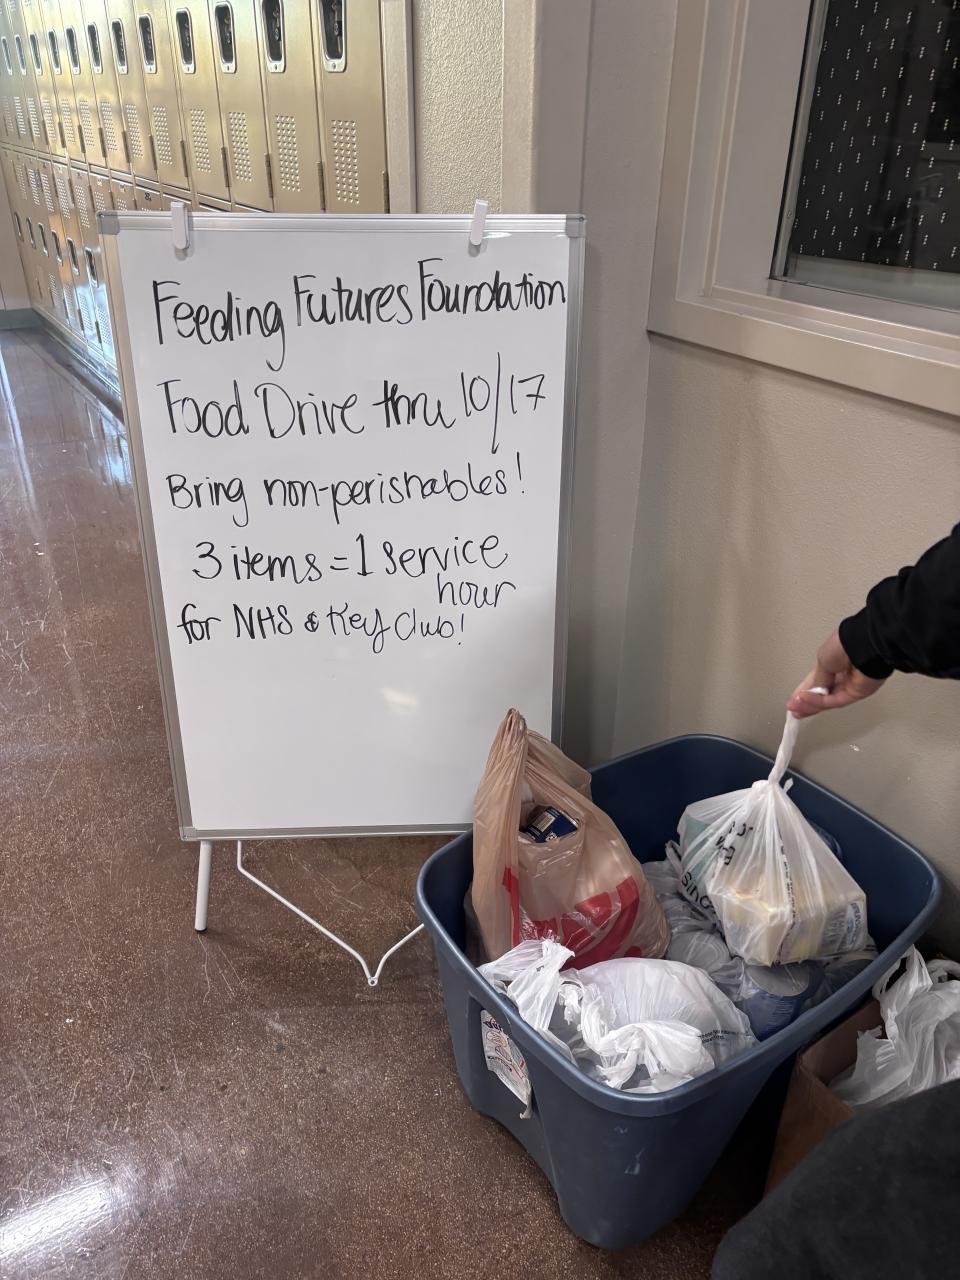 Feeding Futures Foundation
Food Drive thru 10/17
Bring non-perishables!
3 items = 1 service
hour
for NHS & Key Club!